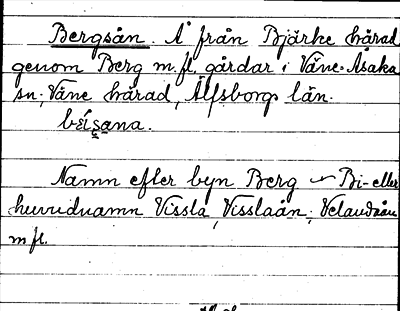 Bergsån. Å från Bjärke härad
genom Berg m.fl. gårdar i Väne-Åsaka
sn; Väne härad, Älfsborgs län.
Namn efter byn Berg – Bi- eller
huvudnamn Vissla, Visslaån,
m fl.